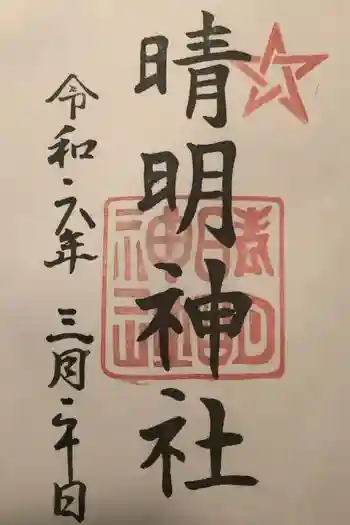 晴明神社
晴明
神社
令和六年 三月二十日